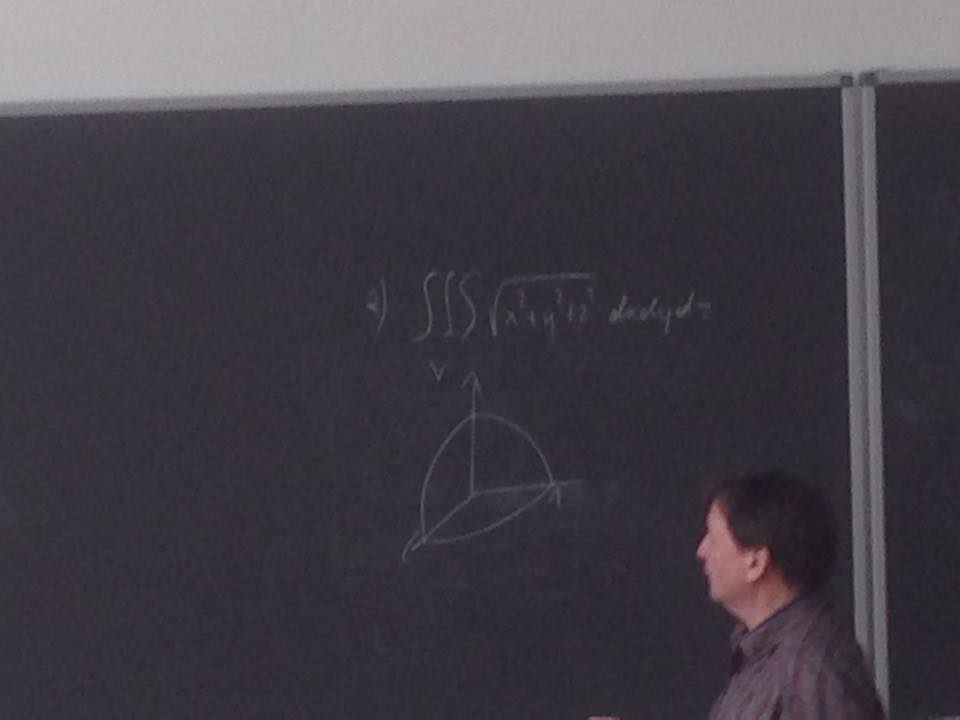 a) ∭ √x²+y²+z² dxdydz
V
1